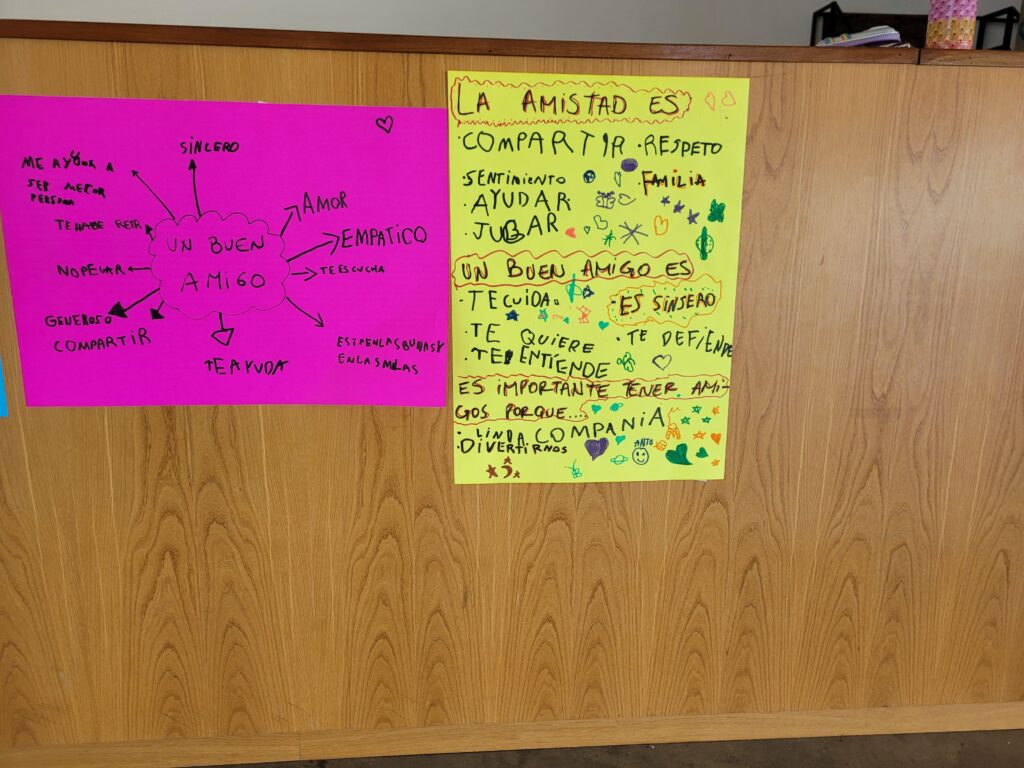 SINCERO
ME AYUDA A
SER MEJOR
PERSONA
AMOR
EMPATICO
UN BUEN
AMIGO
NO PEGAR
TE ESCUCHA
GENEROSO
COMPARTIR
TE AYUDA
EN LAS MALAS
LA AMISTAD ES
·COMPARTIR ·RESPETO
·SENTIMIENTO ·FAMILIA
·AYUDAR
·JUGAR
UN BUEN AMIGO ES
·TE CUIDA. ·ES SINSERO
·TE QUIERE ·TE DEFIENDE
·TE ENTIENDE
ES IMPORTANTE TENER AMI-
GOS PORQUE....
·LINDA COMPANIA
·DIVERTIRNOS
ANTO